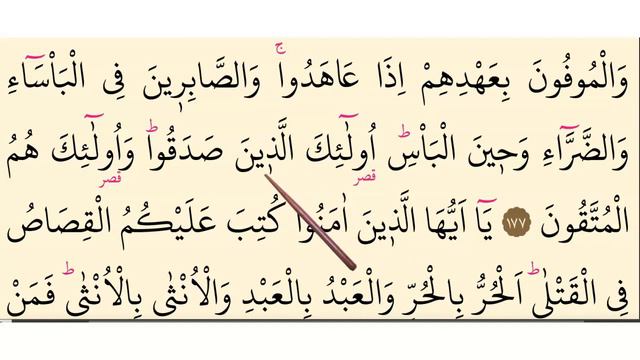 وَالْمُوفُونَ بِعَهْدِهِمْ اِذَا عَاهَدُواۚ وَالصَّابِر۪ينَ فِى الْبَأْسَٓاءِ
وَالضَّرَّٓاءِ وَح۪ينَ الْبَأْسِۜ اُولٰٓئِكَ الَّذ۪ينَ صَدَقُواۜ وَاُولٰٓئِكَ هُمُ
قصر قصر
الْمُتَّقُونَ ١٧٧ يَٓا اَيُّهَا الَّذ۪ينَ اٰمَنُوا كُتِبَ عَلَيْكُمُ الْقِصَاصُ
فِى الْقَتْلٰىۜ اَلْحُرُّ بِالْحُرِّ وَالْعَبْدُ بِالْعَبْدِ وَالْاُنْثٰى بِالْاُنْثٰىۜ فَمَنْ